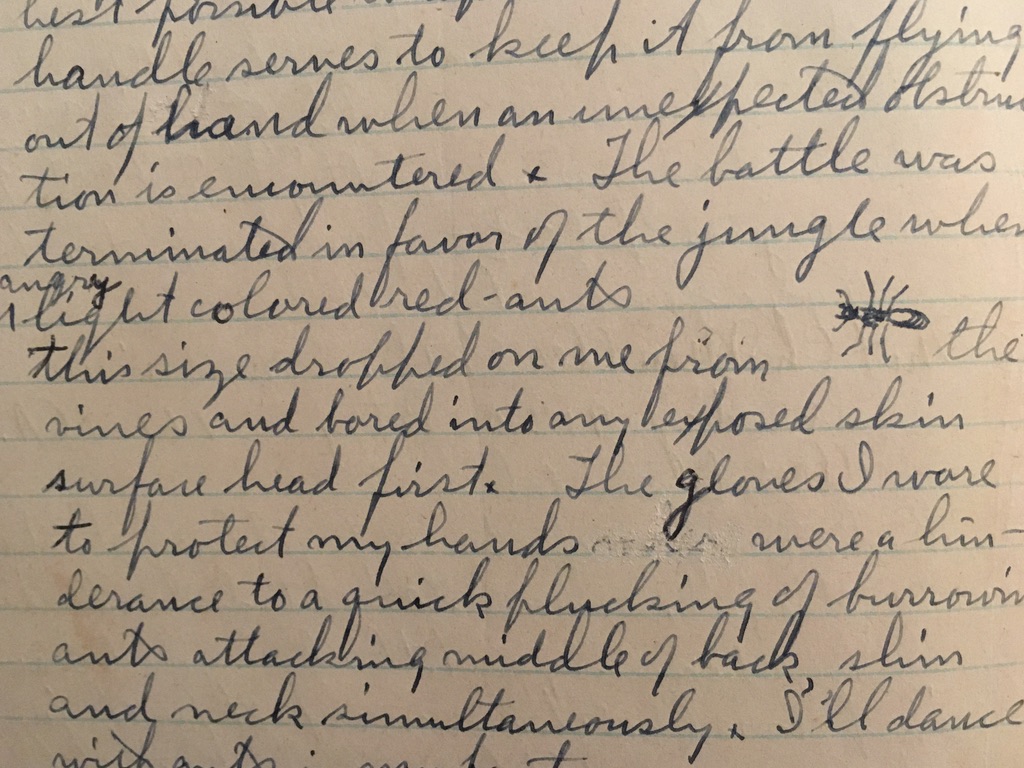 best possible
handle serves to keep it from flying
out of hand when an unexpected obstruc
tion is encountered x The battle was
terminated in favor of the jungle when
angry
light colored red-ants
this size dropped on me from the
vines and bored into any exposed skin
surface head first x The gloves I wore
to protect my hands were a hin-
derance to a quick plucking of burrowin
ants attacking middle of back, shin
and neck simultaneously x I'll dance
with ants in my